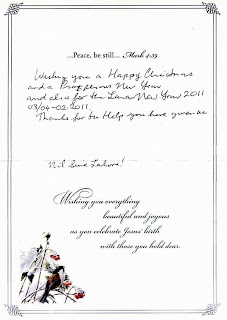 ...Peace, be still... Mark 4:39
Wishing you a Happy Christmas
and a Prosperous New Year
and also for the Lunar New Year 2011
03/04-02-2011.
Thanks for the Help you have given me
Nil Sine Labore!
Wishing you everything
beautiful and joyous
as you celebrate Jesus' birth
with those you hold dear.